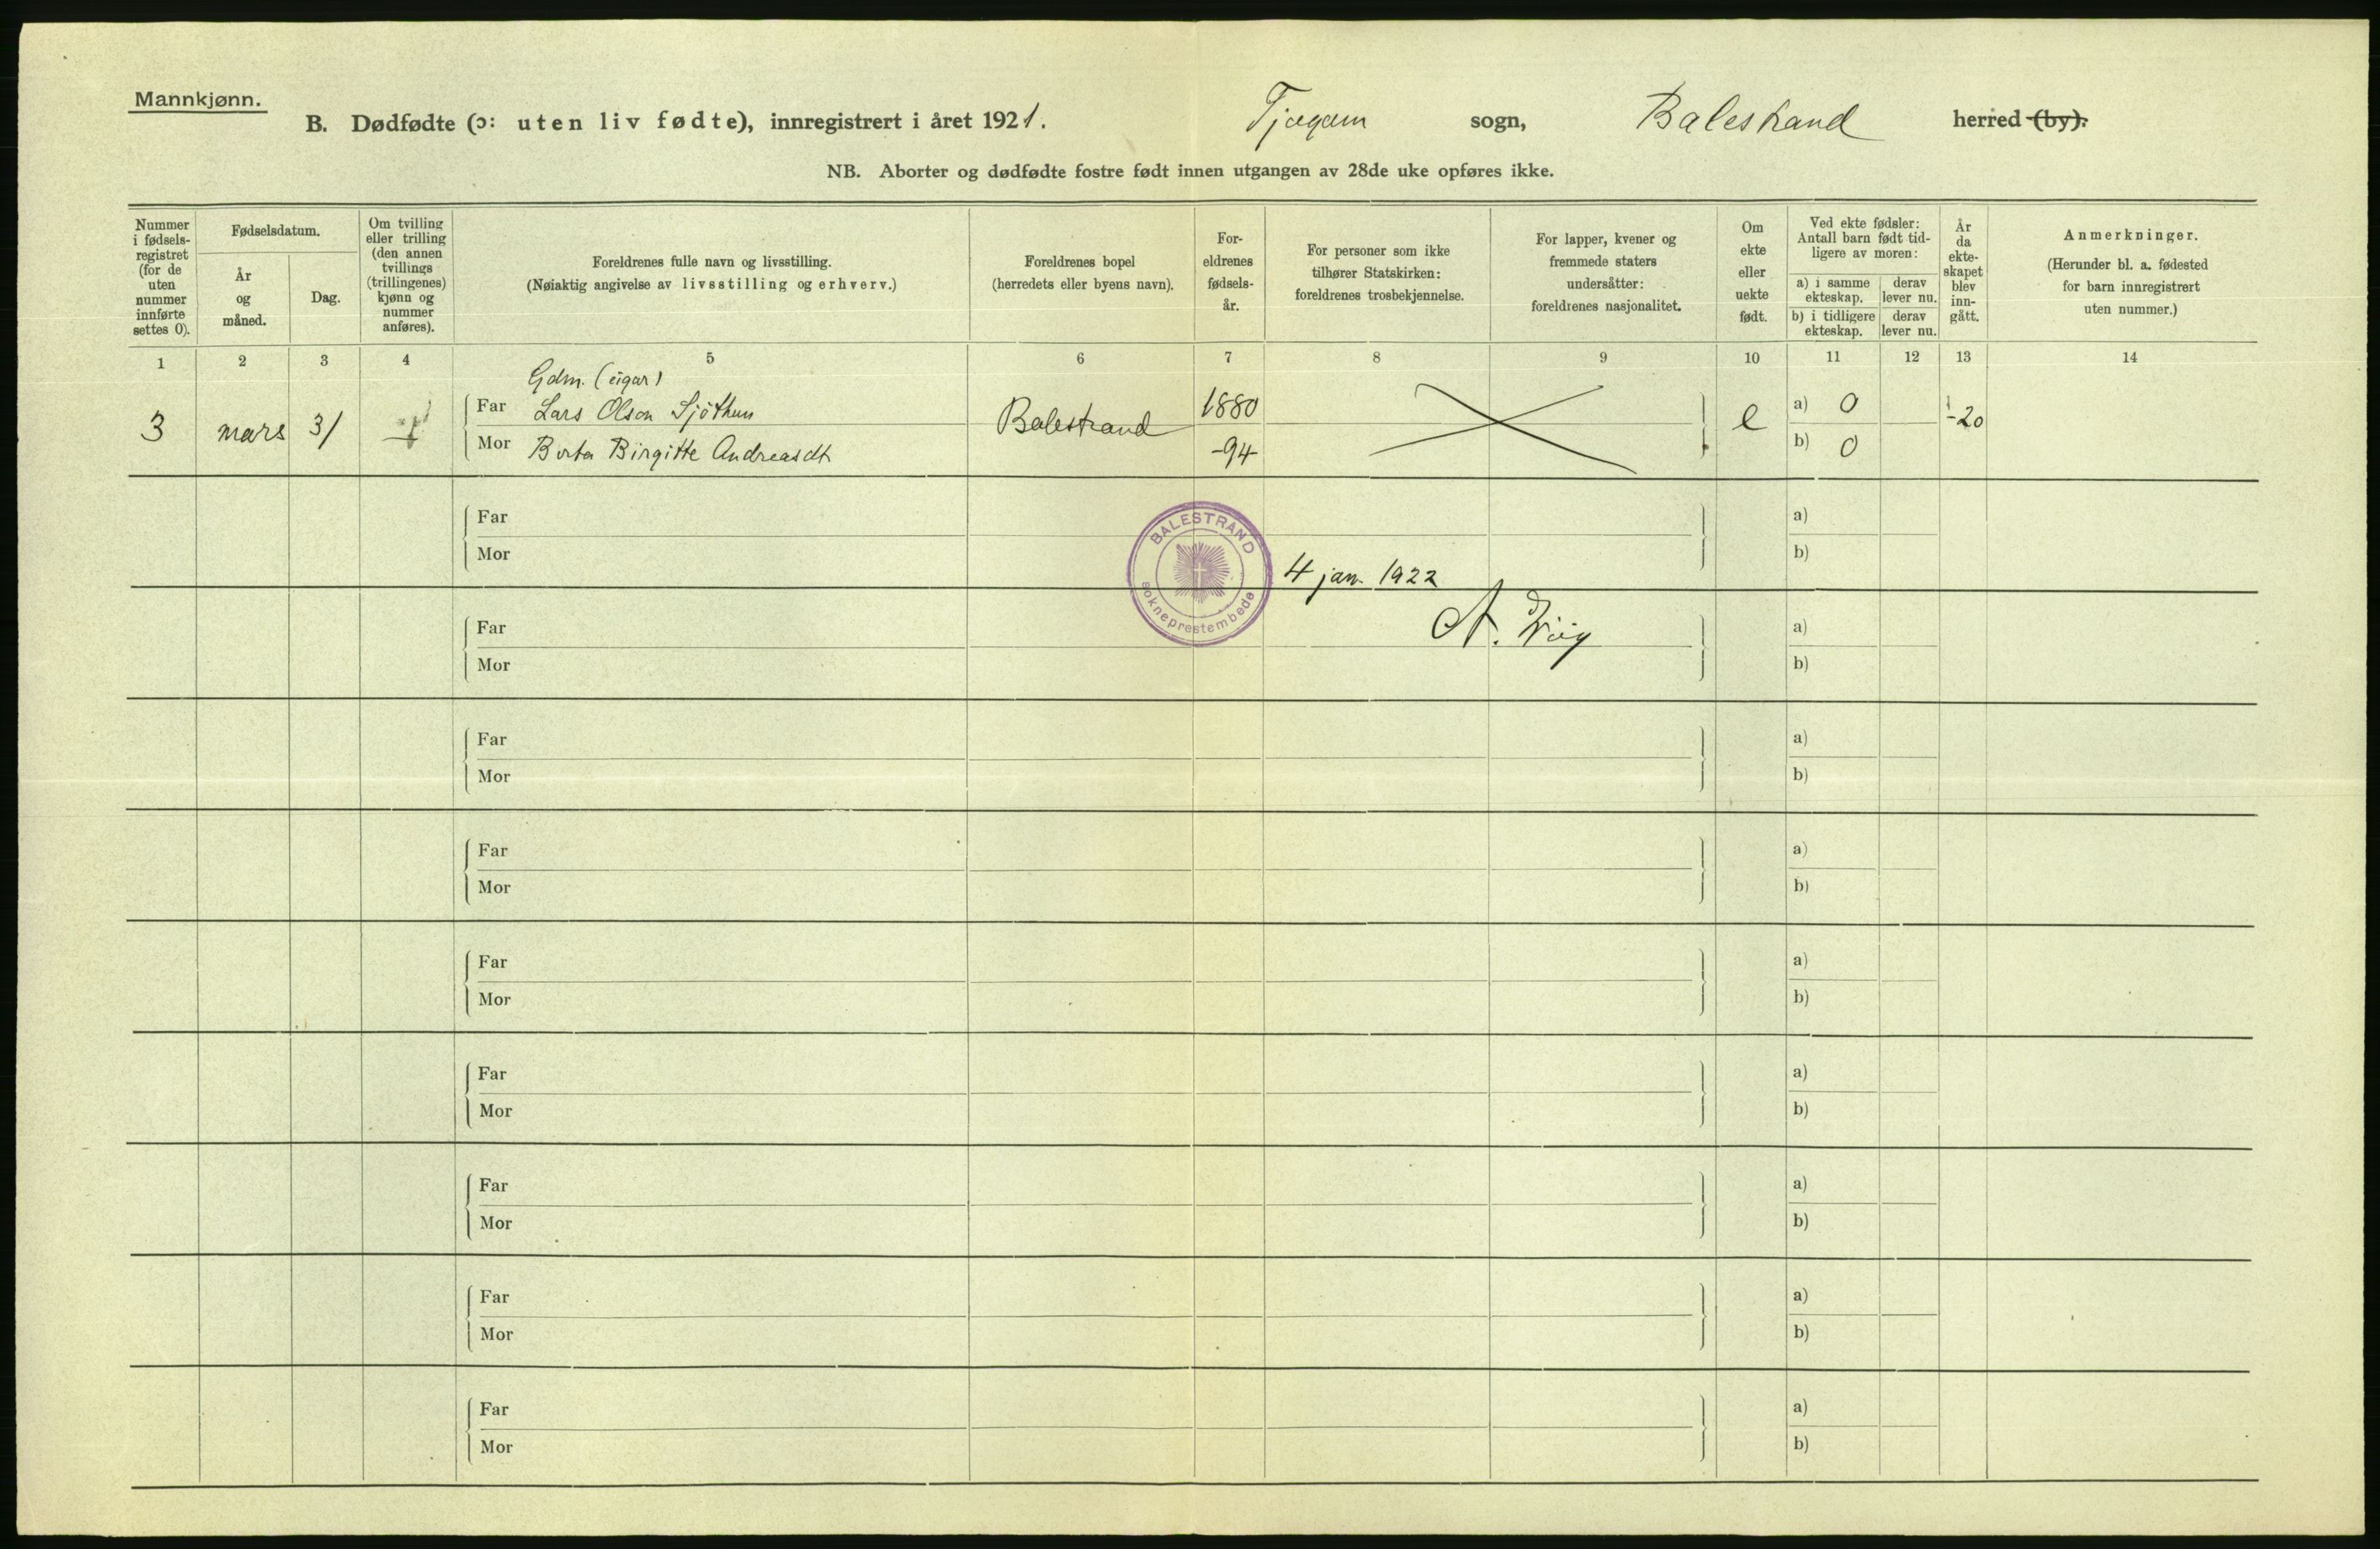 Mannkjønn.
B. Dødfødte (ɔ: uten liv fødte), innregistrert i året 1921. Tjugum sogn, Balestrand herred (by).
NB. Aborter og dødfødte fostre født innen utgangen av 28de uke opføres ikke.
Nummer
i fødsels-
registret
(for de
uten
nummer
innførte
settes 0).
Fødselsdatum.
År
og
måned.
Dag.
Om tvilling
eller trilling
(den annen
tvillings
(trillingenes)
kjønn og
nummer
anføres).
Foreldrenes fulle navn og livsstilling.
(Nøiaktig angivelse av livsstilling og erhverv.)
Foreldrenes bopel
(herredets eller byens navn).
For-
eldrenes
fødsels-
år.
For personer som ikke
tilhører Statskirken:
foreldrenes trosbekjennelse.
For lapper, kvener og
fremmede staters
undersåtter:
foreldrenes nasjonalitet.
Om
ekte
eller
uekte
født.
Ved ekte fødsler:
Antall barn født tid-
ligere av moren:
a) i samme
ekteskap.
derav
lever nu.
b) i tidligere
ekteskap.
derav
lever nu.
År
da
ekte-
skapet
blev
inn-
gått.
Anmerkninger.
(Herunder bl. a. fødested
for barn innregistrert
uten nummer.)
1 2 3 4 5 6 7 8 9 10 11 12 13 14
Gdm. (eigar)
3 mars 31 Far Lars Olson Sjøthun Balestrand 1880 e a) 0 -20
Mor Berta Birgitte Andreasdt -94 b) 0
Far a)
Mor b)
BALESTRAND
sokneprestembede
4 jan. 1922
Far a)
Mor b)
Far a)
Mor b)
Far a)
Mor b)
Far a)
Mor b)
Far a)
Mor b)
Far a)
Mor b)
Far a)
Mor b)
Far a)
Mor b)